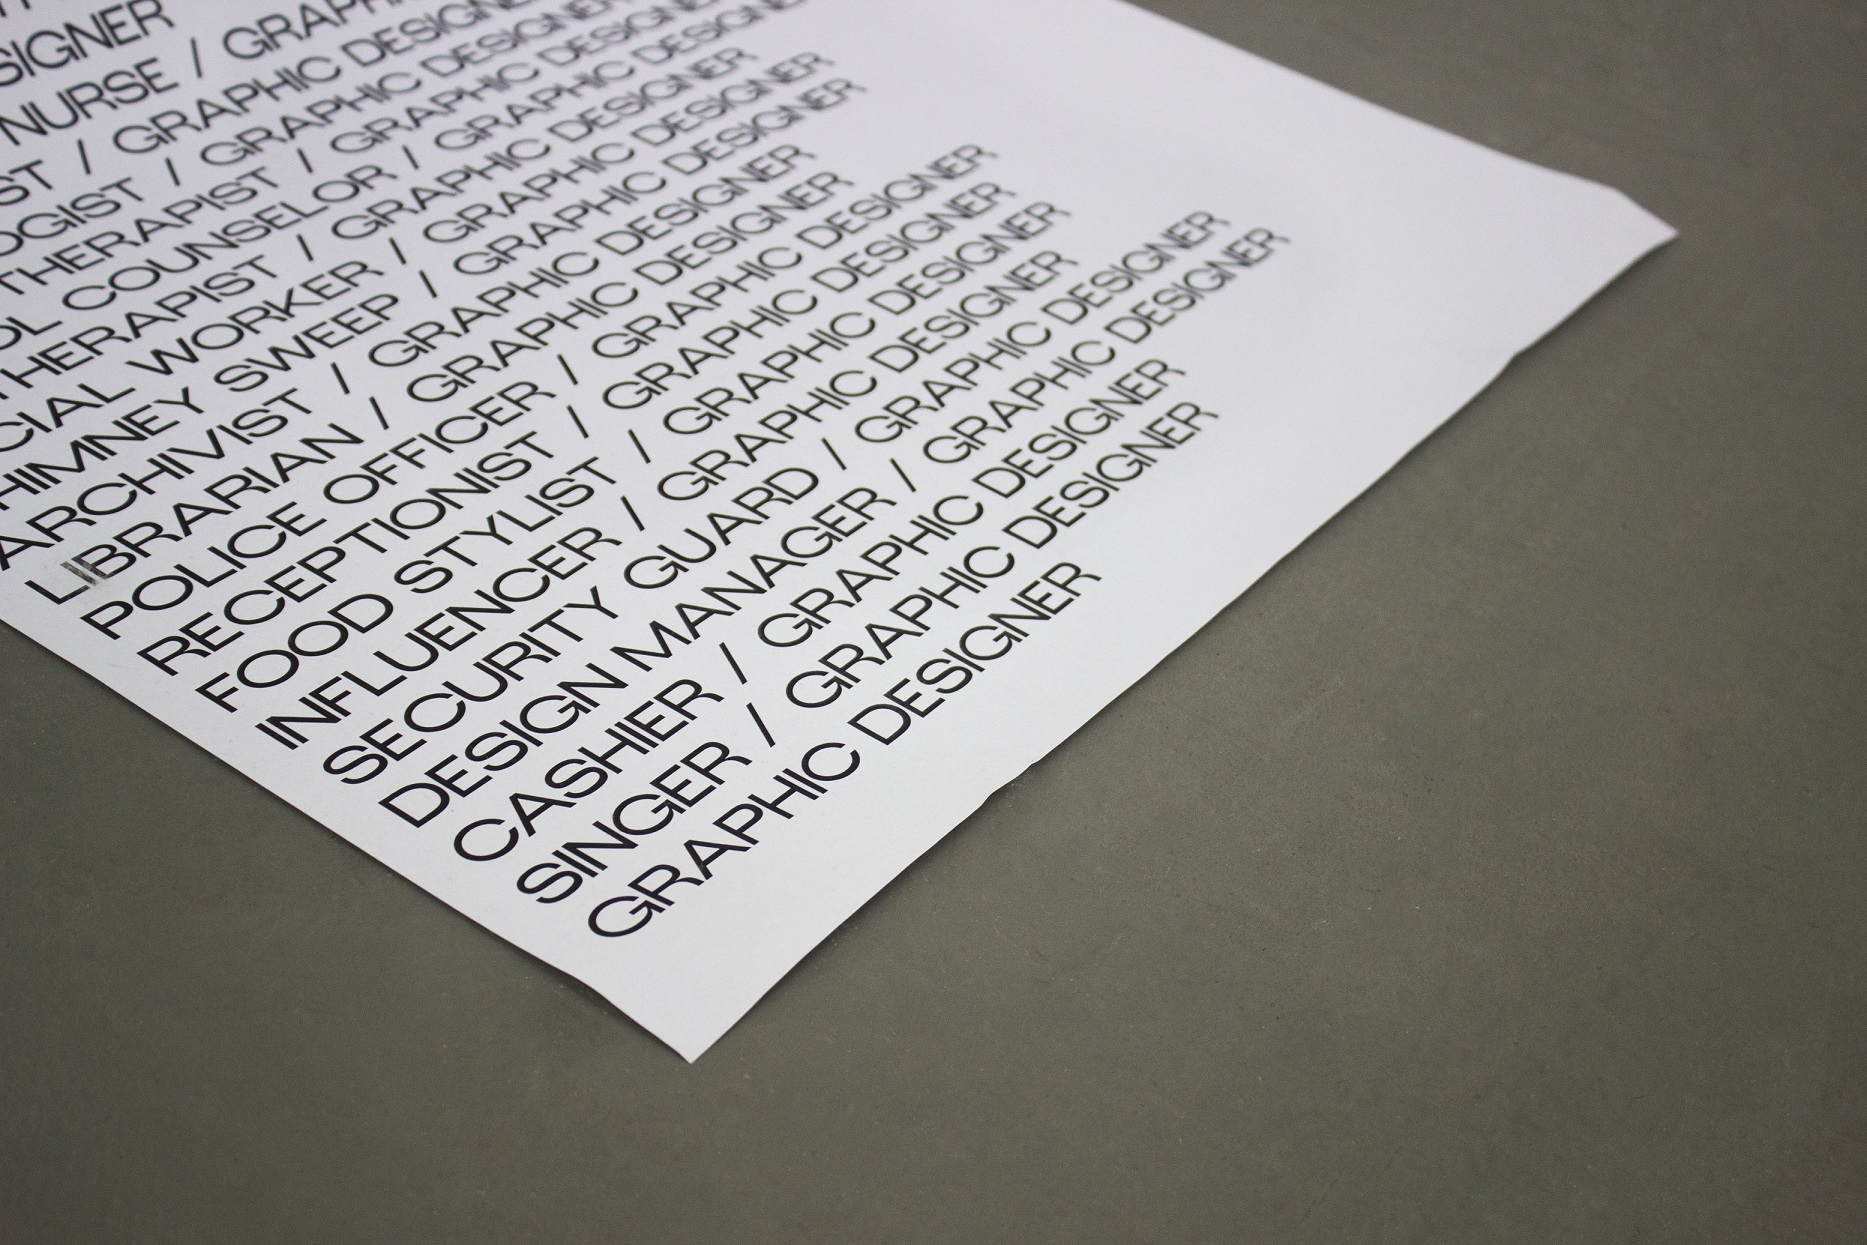 SIGNER
NURSE / GRAPH
ST / GRAPHIC DESIGNE
OGIST / GRAPHIC DESIGNER
THERAPIST / GRAPHIC DESIGNER
OL COUNSELOR / GRAPHIC DESIGNER
THERAPIST / GRAPHIC DESIGNER
CIAL WORKER / GRAPHIC DESIGNER
HIMNEY SWEEP / GRAPHIC DESIGNER
ARCHIVIST / GRAPHIC DESIGNER
LIBRARIAN / GRAPHIC DESIGNER
POLICE OFFICER / GRAPHIC DESIGNER
RECEPTIONIST / GRAPHIC DESIGNER
FOOD STYLIST / GRAPHIC DESIGNER
INFLUENCER / GRAPHIC DESIGNER
SECURITY GUARD / GRAPHIC DESIGNER
DESIGN MANAGER / GRAPHIC DESIGNER
CASHIER / GRAPHIC DESIGNER
SINGER / GRAPHIC DESIGNER
GRAPHIC DESIGNER